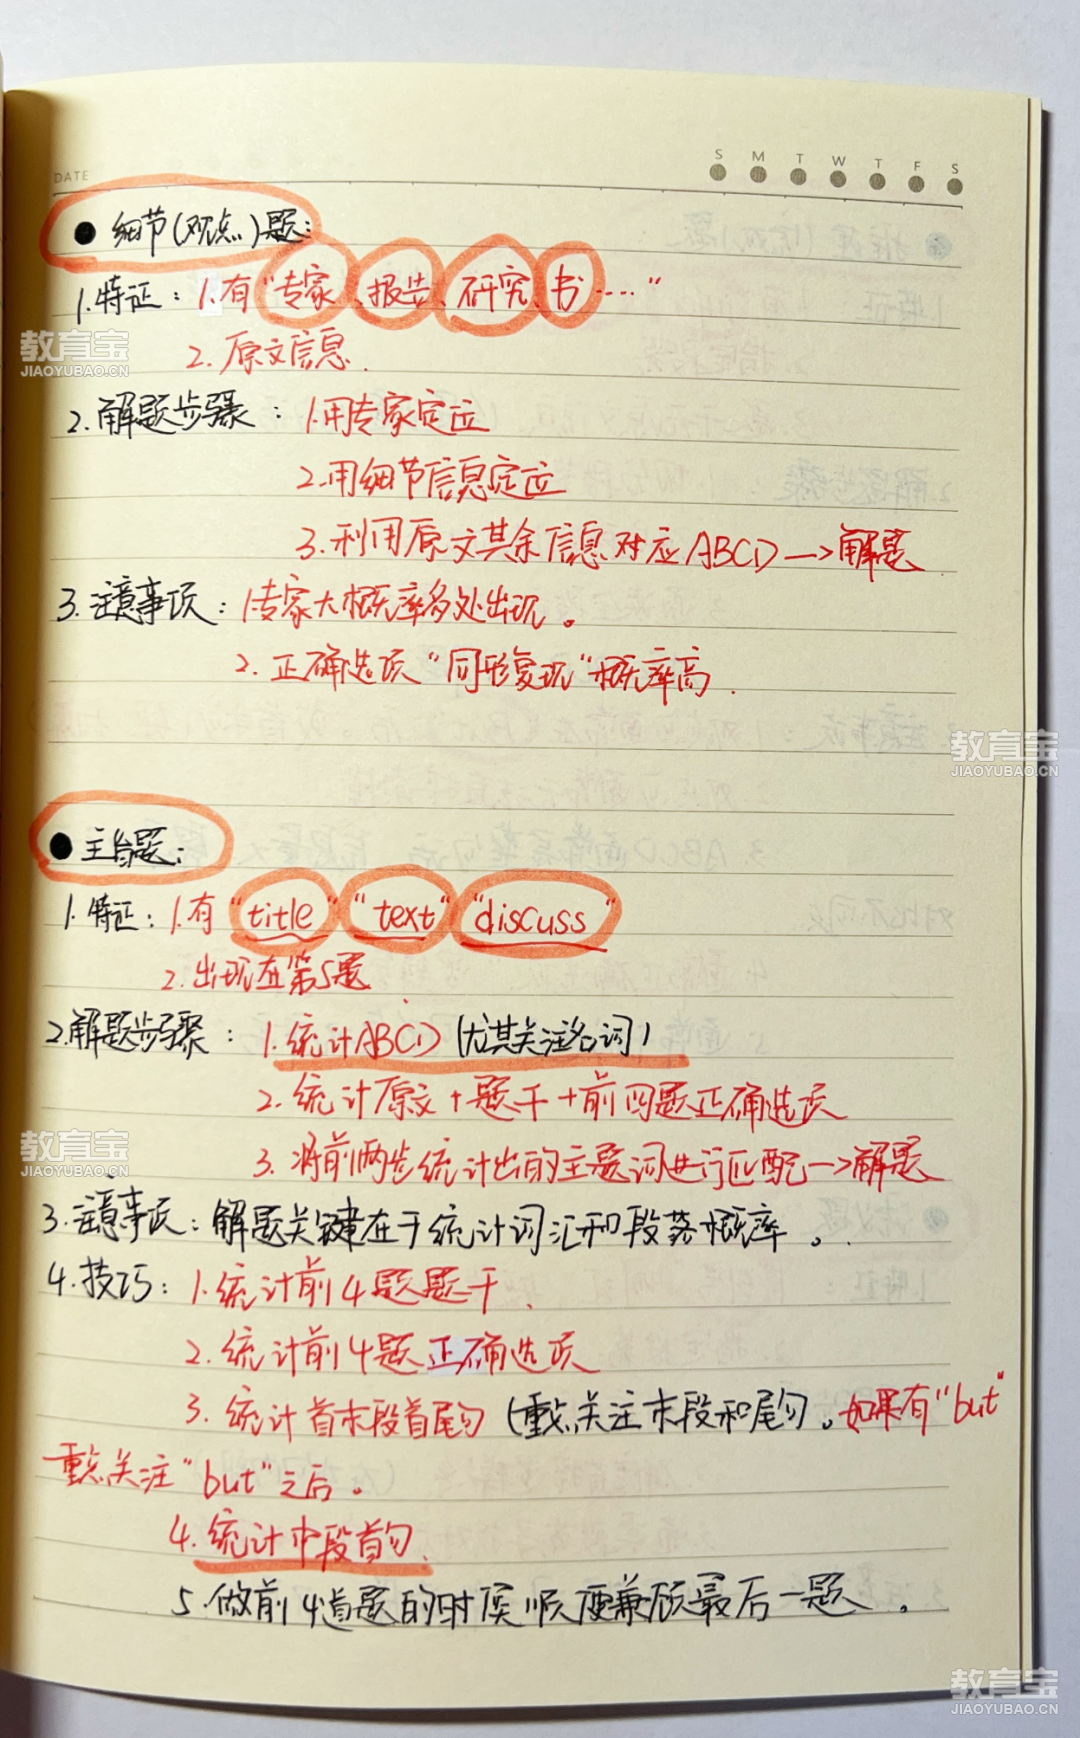 DATE
S M T W T F S
● 细节(观点)题：
1.特征：1.有“专家、报告、研究、书……”
2.原文信息.
2.解题步骤：1.用专家定位
2.用细节信息定位
3.利用原文其余信息对应ABCD→解题
3.注意事项：1.专家大概率多处出现。
2.正确选项“同形复现”概率高.
● 主旨题：
1.特征：1.有“title”“text”“discuss”
2.出现在第5题
2.解题步骤：1.统计ABCD(尤其关注名词)
2.统计原文+题干+前四题正确选项
3.将前两步统计出的主题词进行匹配→解题
3.注意事项：解题关键在于统计词汇和段落概率。
4.技巧：1.统计前4题题干.
2.统计前4题正确选项
3.统计首末段首尾句(重点关注末段和尾句。如果有“but”
重点关注“but”之后。
4.统计中段首句.
5.做前4道题的时候顺便兼顾最后一题。
教育宝
JIAOYUBAO.CN
教育宝
JIAOYUBAO.CN
教育宝
JIAOYUBAO.CN
教育宝
JIAOYUBAO.CN